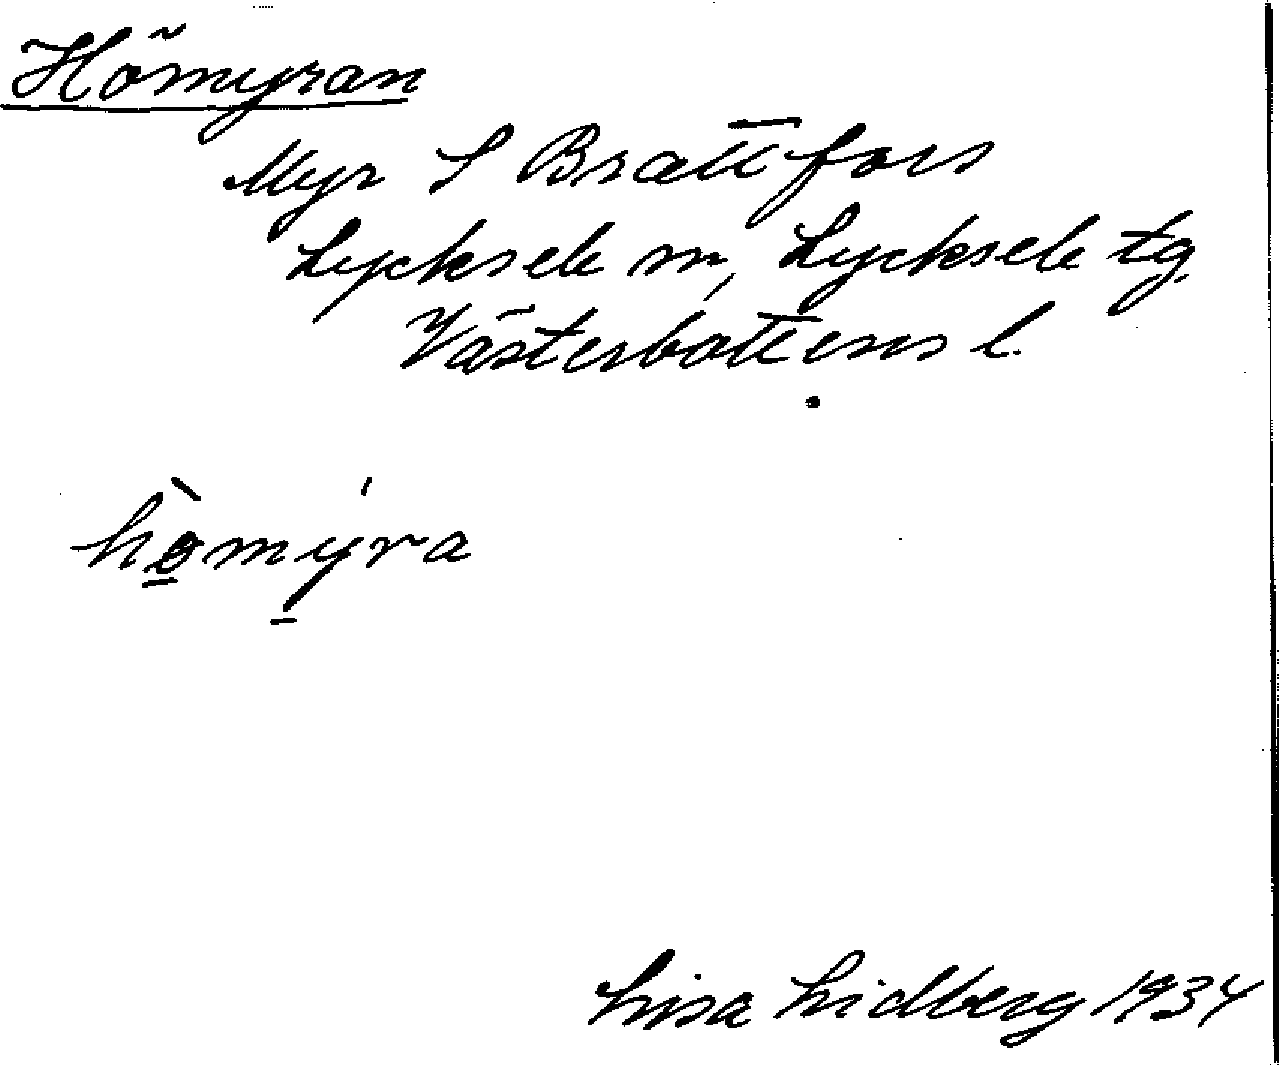 Hömyran
Myr S Brattfors
Lycksele m, Lycksele tg.
Västerbottens l.
hò̱mý̱ra
Lisa Lidberg 1934